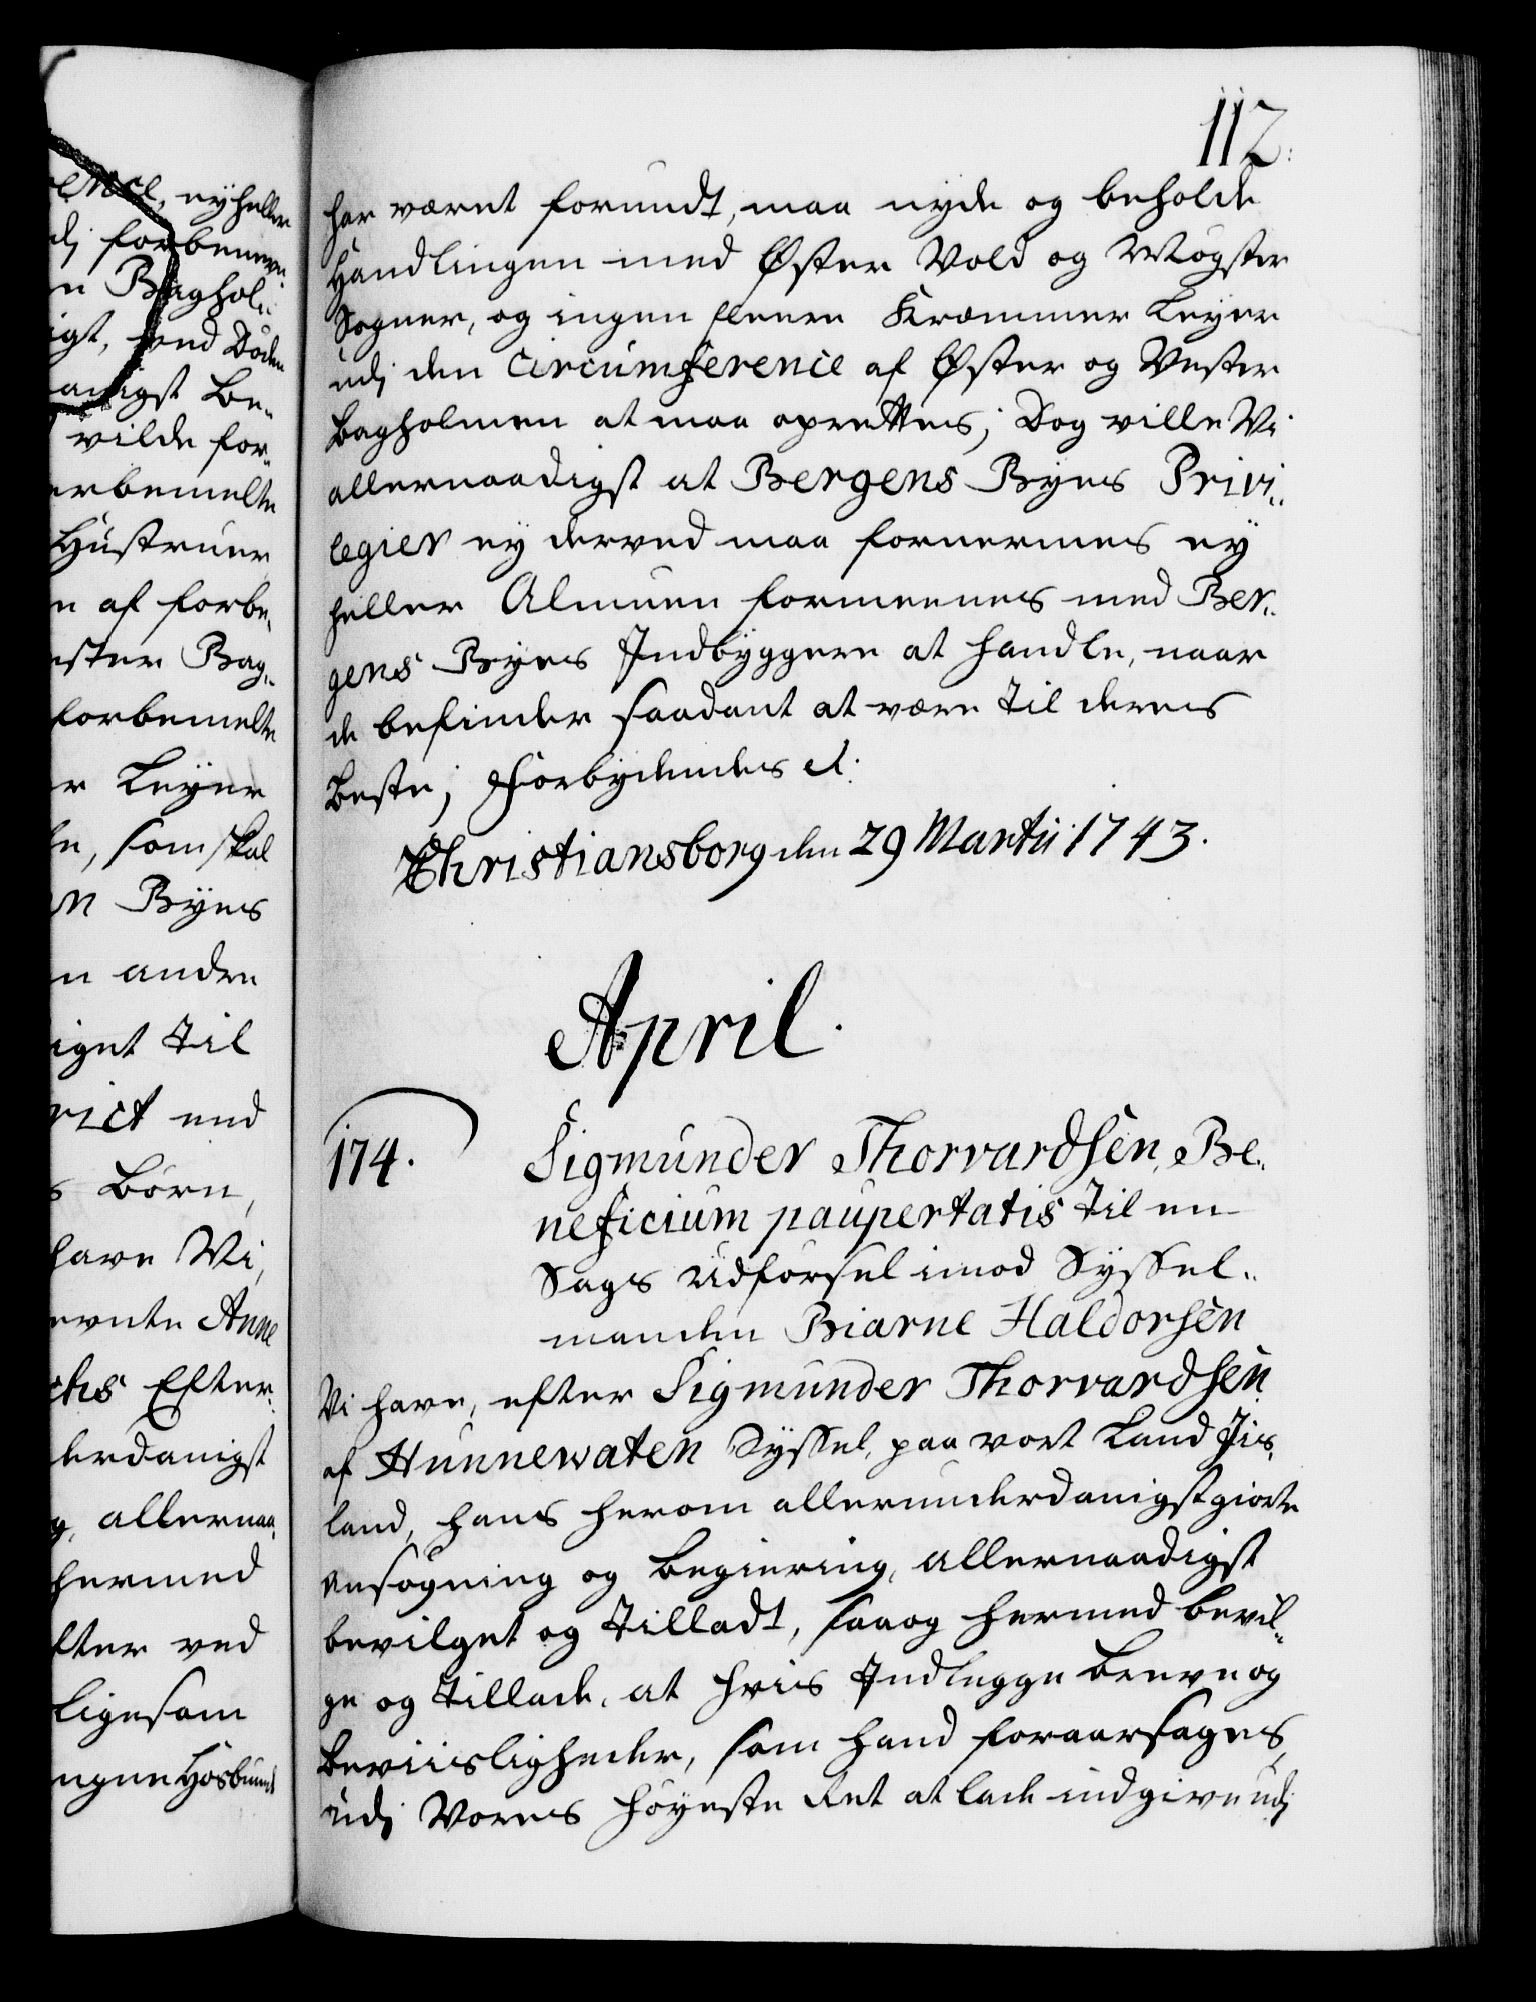 112.
har været forundt, maa nyde og beholde
Handlingen med Øster Vold og Møgster
Sogner, og ingen fleere Kræmmer Leyer
udj den Circumference af Øster og Vester
Bagholmen at maa oprettes; Dog ville Vi
allernaadigst at Bergens Byes Privi„
legier ey derved maa fornermes ey
heller Almuen formeenes med Ber„
gens Byes Indbyggere at handle, naar
de befinder saadant at være til deres
beste; Forbydendes etc:
Christiansborg den 29 Martii 1743.
April.
174.
Sigmunder Thorvardsen, Be„
neficium paupertatis til en
Sags Udførsel imod Syssel„
manden Biarne Haldorsen
Vi have, efter Sigmunder Thorvardsen
af Hunnewaten Syssel, paa vort Land Jis„
land, hans herom allerunderdanigst giorte
Ansøgning og Begiering, allernaadigst
bevilget og tilladt, saa og hermed bevil„
ge og tillade, at hvis Indlegge Breve og
Beviisligheder, som hand foraarsages,
udj Vores Høyeste Ret at lade indgive udj
ey heller
forbenevn
Baghol„
end Døden
Be„
vilde for„
erbemelte
Hustruer
n af forbe„
ester Bag„
forbemelte
r Leyer
som skal
Byes
n andre
iget til
rict end
s Børn,
have Vi,
evnte Anne
chs Efter„
derdanigst
g, allernaa„
hermed
fter ved
ligesom
egne Hosbunds